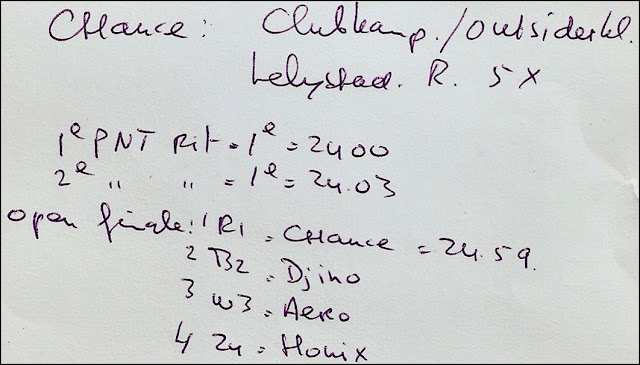 CHance: Clubkamp./outsiderkl.
Lelystad. R. 5X
1e PNT Rit = 1e = 2400
2e " " = 1e = 24.03
open finale: 1 R1 = CHance = 24.59.
2 B2 = Djino
3 W3 = Aero
4 Z4 = Honix